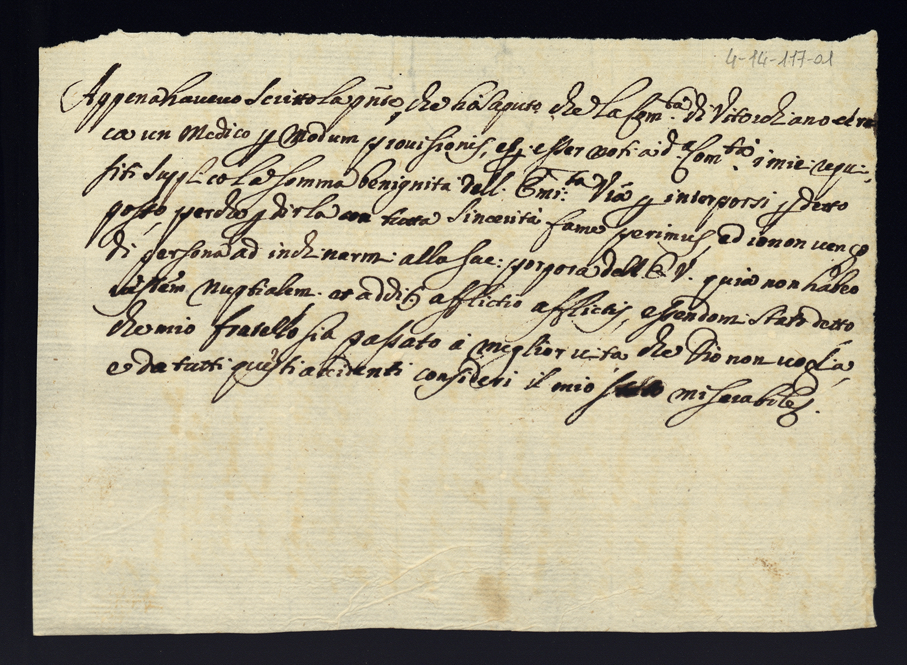 4-14-117-01
Appena havevo scritto la pñte, che hà saputo che la Com.tà di Vitorchiano
ca un Medico p modum provisionis, e p esser noti a d.a Com.tà i miei requi-
siti suppl.co la somma benignità dell' Em.za V.ra p interporsi p detto
posto, perche p dirla con tutta sincerità fame perimus, ed io non vengo
di persona ad inchinarm. alla sac: porpora dell' E. V. quia non habeo
vestem nuptialem. et additr afflictio afflictis, essendom. stato detto
che mio fratello sia passato à miglior vita che Dio non voglia,
e da tutti questi accidenti consideri il mio stato miserabile.